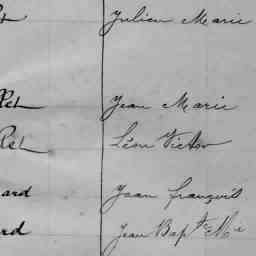 Julien Marie
Ret Jean Marie
Ret Léon Victor
ard Jean François
rd Jean Bapte Me